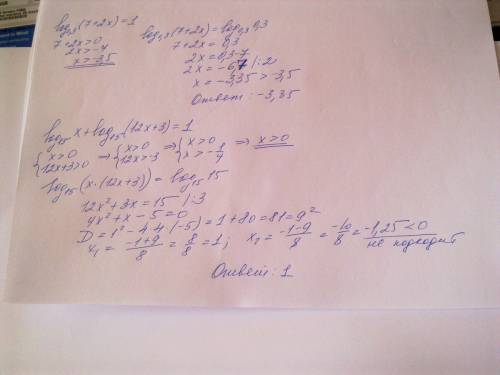 log₀,₃(7+2x)=1
7+2x>0
2x>-7
x>-3,5
log₀,₃(7+2x)=log₀,₃0,3
7+2x=0,3
2x=0,3-7
2x=-6,7 |:2
x=-3,35>-3,5
Ответ: -3,35
log₁₅x+log₁₅(12x+3)=1
{x>0 12x+3>0 ⇒ {x>0 12x>-3 ⇒ {x>0 x>-1/4 ⇒ x>0
log₁₅(x·(12x+3))=log₁₅15
12x²+3x=15 |:3
4x²+x-5=0
D=1²-4·4·(-5)=1+80=81=9²
x₁=(-1+9)/8=8/8=1; x₂=(-1-9)/8=-10/8=-1,25<0
не подходит
Ответ: 1